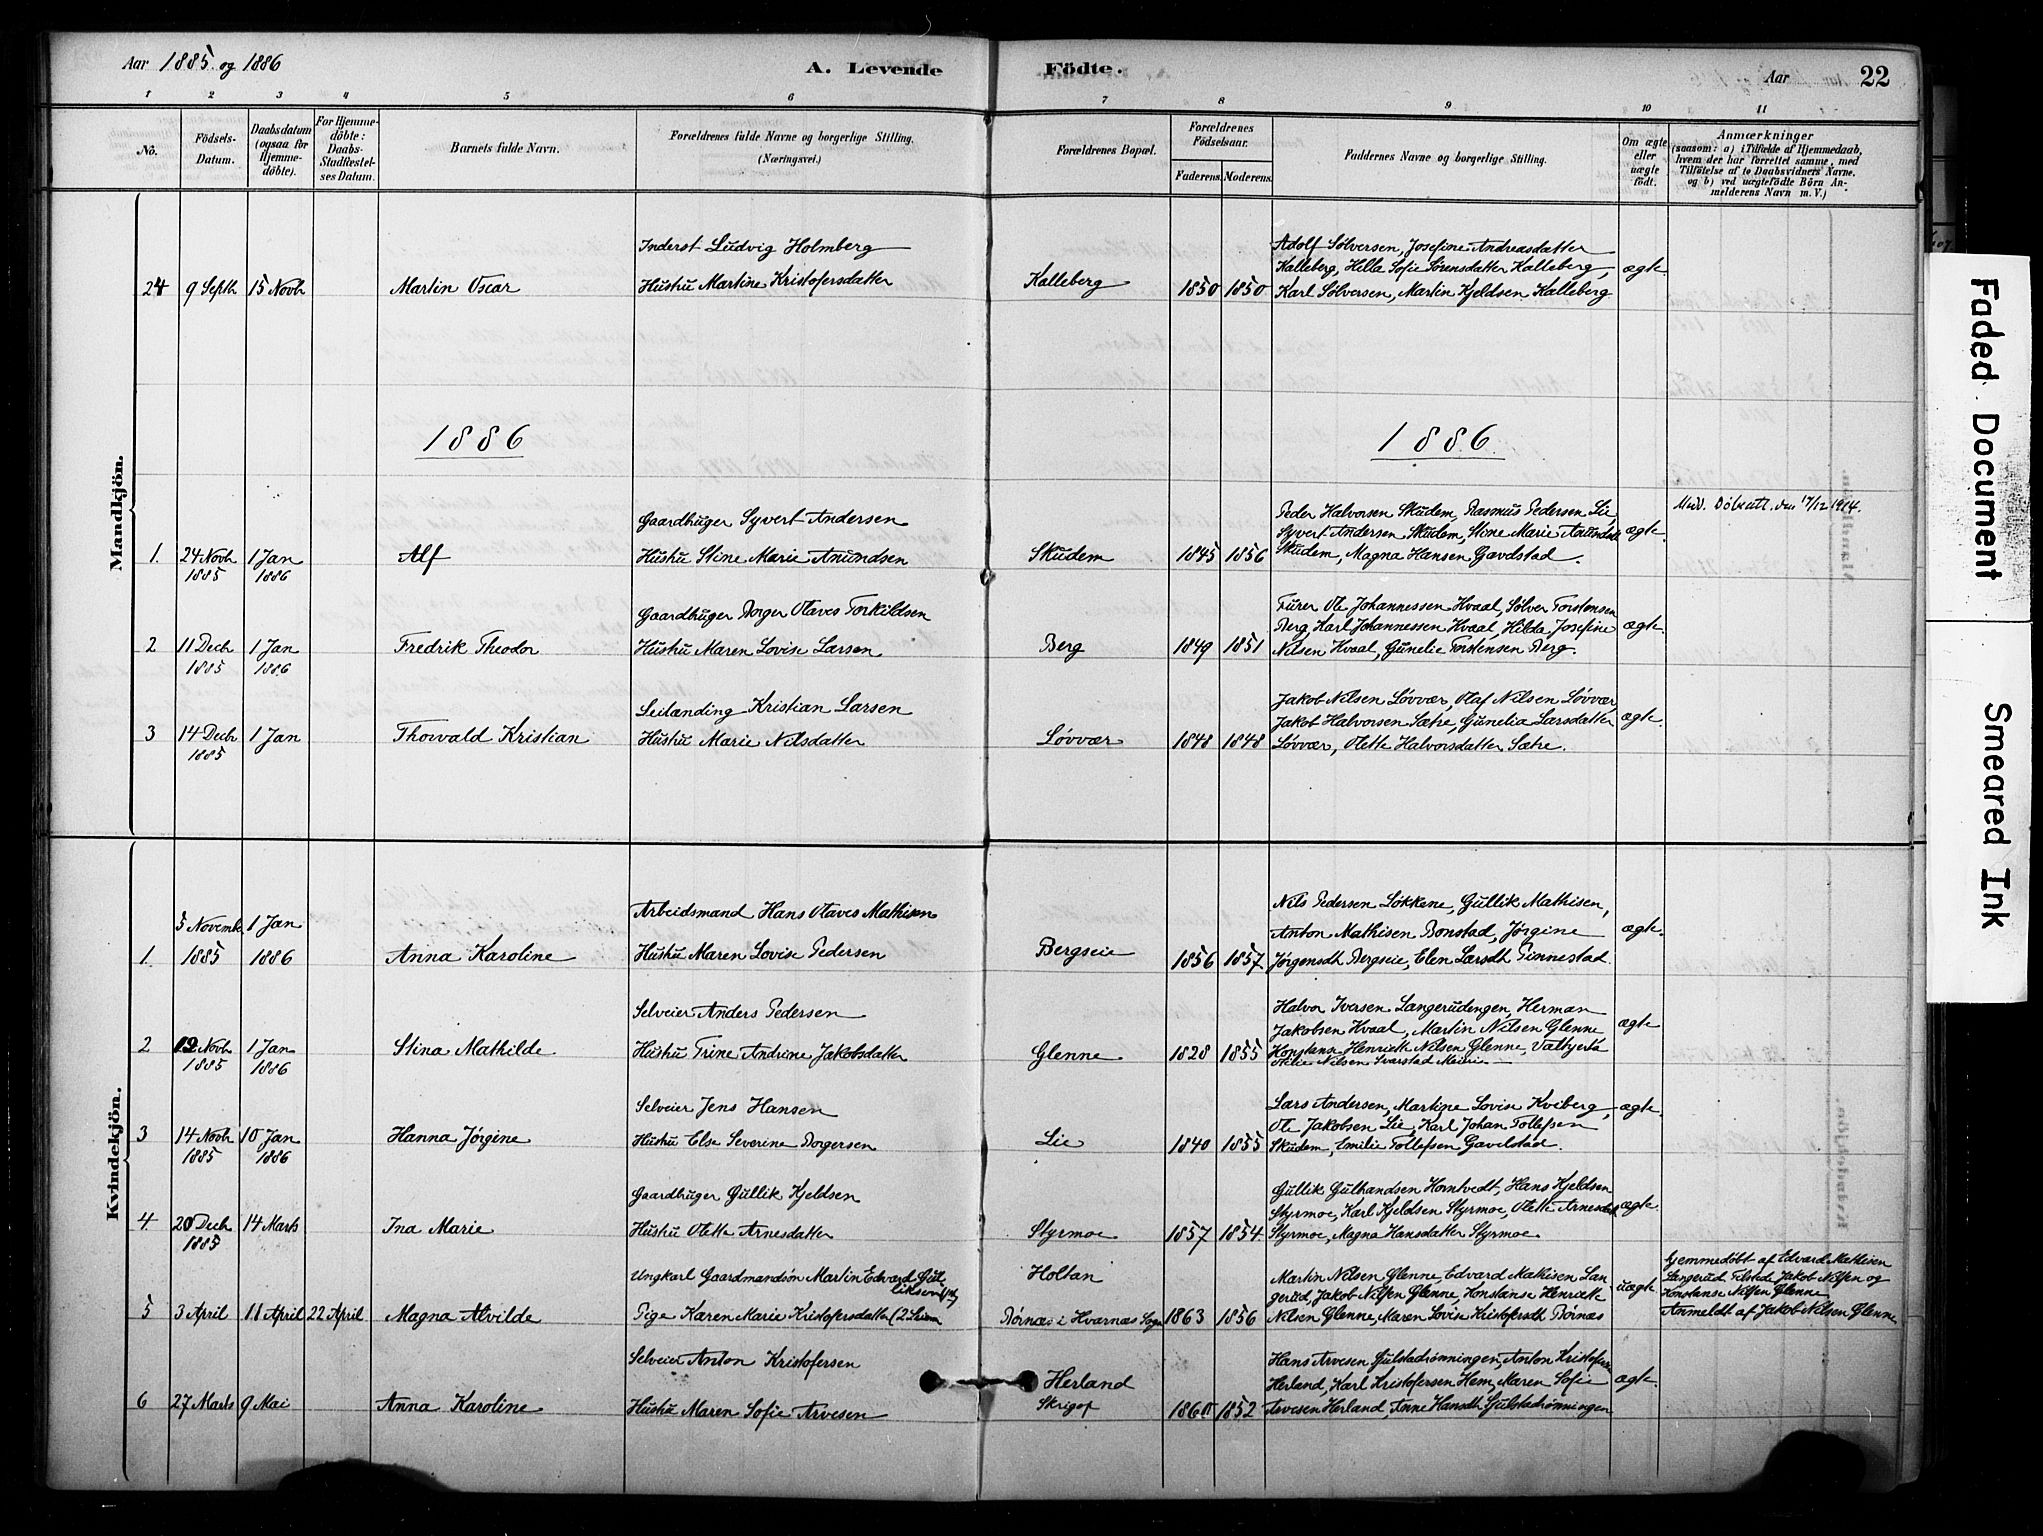 Aar 1885 og 1886
A. Levende
Födte.
Aar
22
1 2 3 4 5 6 7 8 9 10 11
No.
Födsels-
Datum.
Daabsdatum
(ogsaa for
Hjemme-
döbte).
For Hjemme-
döbte:
Daabs-
Stadfæstel-
ses Datum.
Barnets fulde Navn.
Forældrenes fulde Navne og borgerlige Stilling.
(Næringsvei.)
Forældrenes Bopæl.
Forældrenes
Födselsaar.
Faderens. Moderens.
Faddernes Navne og borgerlige Stilling.
Om ægte
eller
uægte
födt.
Anmærkninger
(saasom: a) i Tilfælde af Hjemmedaab,
hvem der har forrettet samme, med
Tilföielse af to Daabsvidners Navne.
og b) ved uægtefödte Börn An-
melderens Navn m. V.)
Mandkjön.
24 9 Septb 15 Novb
Martin Oscar
Inderst Ludvig Holmberg
Hustru Martine Kristofersdatter
Kalleberg
1850 1850
Adolf Sølversen, Josefine Andreasdatter
Kalleberg, Hella Sofie Sørensdatter Kalleberg,
Karl Sølversen, Martin Kjeldsen Kalleberg
ægte
1886
1886
1. 24 Novb 1 Jan
1885 1886
Alf
Gaardbruger Syvert Andersen
Hustru Stine Marie Amundsen
Skudem
1845 1856
Peder Halvorsen Skudem, Rasmus Pedersen Lie,
Syvert Andersen Skudem, Stine Marie Amundsdt
Skudem, Magna Hansen Gavelstad.
ægte.
Medd. Döbsatt. den 17/12 1914.
2 11 Decb 1 Jan
1885 1886
Fredrik Theodor
Gaardbruger Borger Olaves Torkildsen
Hustru Maren Lovise Larsen
Berg
1849 1851
Furer Ole Johannessen Hvaal, Sølver Torstensen
Berg, Karl Johannessen Hvaal, Hilda Josefine
Nilsen Hvaal, Gunelie Torstensen Berg.
ægte.
3 14 Decb 1 Jan
1885
Thorvald Kristian
Leilænding Kristian Larsen
Hustru Marie Nilsdatter
Løvvær
1848 1848
Jakob Nilsen Løvvær, Olaf Nilsen Løvvær
Jakob Halvorsen Sætre, Gunelia Larsdatter
Løvvær, Olette Halvorsdatter Sætre.
ægte.
Kvindekjön.
1. 5 Novemb. 1 Jan
1885 1886
Anna Karoline
Arbeidsmand Hans Olaves Mathisen
Hustru Maren Lovise Pedersen
Bergseie
1856 1857
Nils Pedersen Løkkene, Gullik Mathisen,
Anton Mathisen Bonstad, Jørgine
Jørgensdt Bergseie, Elen Larsdt Tinnestad.
ægte.
2 12 Novb 1 Jan
1885 1886
Stina Mathilde
Selveier Anders Pedersen
Hustru Trine Andrine Jakobsdatter
Glenne
1828 1855
Halvor Iversen Langerudengen, Herman
Jakobsen Hvaal, Martin Nilsen Glenne
Konstanse Henriette Nilsen Glenne, Valbjerta
Otilie Nilsen Svarstad Meieri
ægte
3 14 Novb 10 Jan
1885 1886
Hanna Jørgine
Selveier Jens Hansen
Hustru Else Severine Borgersen
Lie
1840 1855
Lars Andersen, Martine Lovise Kviberg,
Ole Jakobsen Lie, Karl Johan Tollefsen
Skudem, Emilie Tollefsen Gavelstad.
ægte.
4. 20 Decb 14 Marts
1885
Ina Marie
Gaardbruger Gullik Kjeldsen
Hustru Olette Arnesdatter
Styrmoe
1857 1854
Gullik Gulbrandsen Horntvedt, Hans Kjeldsen
Styrmoe, Karl Kjeldsen Styrmoe, Olette Arnesdatt
Styrmoe, Magna Hansdatter Styrmoe.
ægte.
5 3 April 11 April 22 April
Magna Alvilde
Ungkarl Gaardmandsøn Martin Edvard Gul
liksen
Pige Karen Marie Kristofersdatter (2
Holtan
Børnæs i Hvarnæs Sogn
1863 1856
Martin Nilsen Glenne, Edvard Mathisen Lan
gerud, Jakob Nilsen Glenne, Konstanse Henriette
Nilsen Glenne, Maren Lovise Kristofersdt Børnæs
uægte
hjemmedøbt af Edvard Mathisen
Langerud. Tilstede Jakob Nilsen og
Konstanse Nilsen Glenne
Anmeldt af Jakob Nilsen Glenne
6 27 Marts 9 Mai
Anna Karoline
Selveier Anton Kristofersen
Hustru Maren Sofie Arvesen
Herland
Skrigop
1860 1852
Hans Arvesen Gulstadrønningen, Anton Kristofers
Herland, Karl Kristofersen Hem, Maren Sofie
Arvesen Herland, Anne Hansdt Gulstadrønningen
ægte.
Faded Document
Smeared Ink